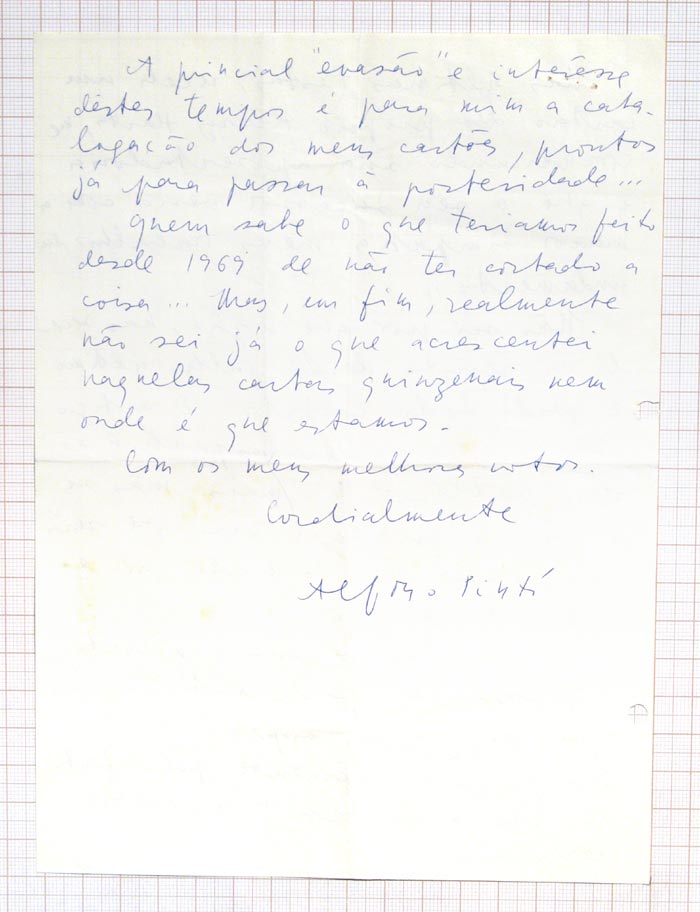 A princial "evasão" e interêsse
dêstes tempos é para mim a cata-
logação dos meus cartões, prontos
já para passar à posteridade...
Quem sabe o que teriamos feito
desde 1969 de não ter cortado a
coisa... Mas, em fim, realmente
não sei já o que acrescentei
naquelas cartas quinzenais nem
onde é que estamos.
Com os meus melhores votos.
Cordialmente
Alfonso Pintó